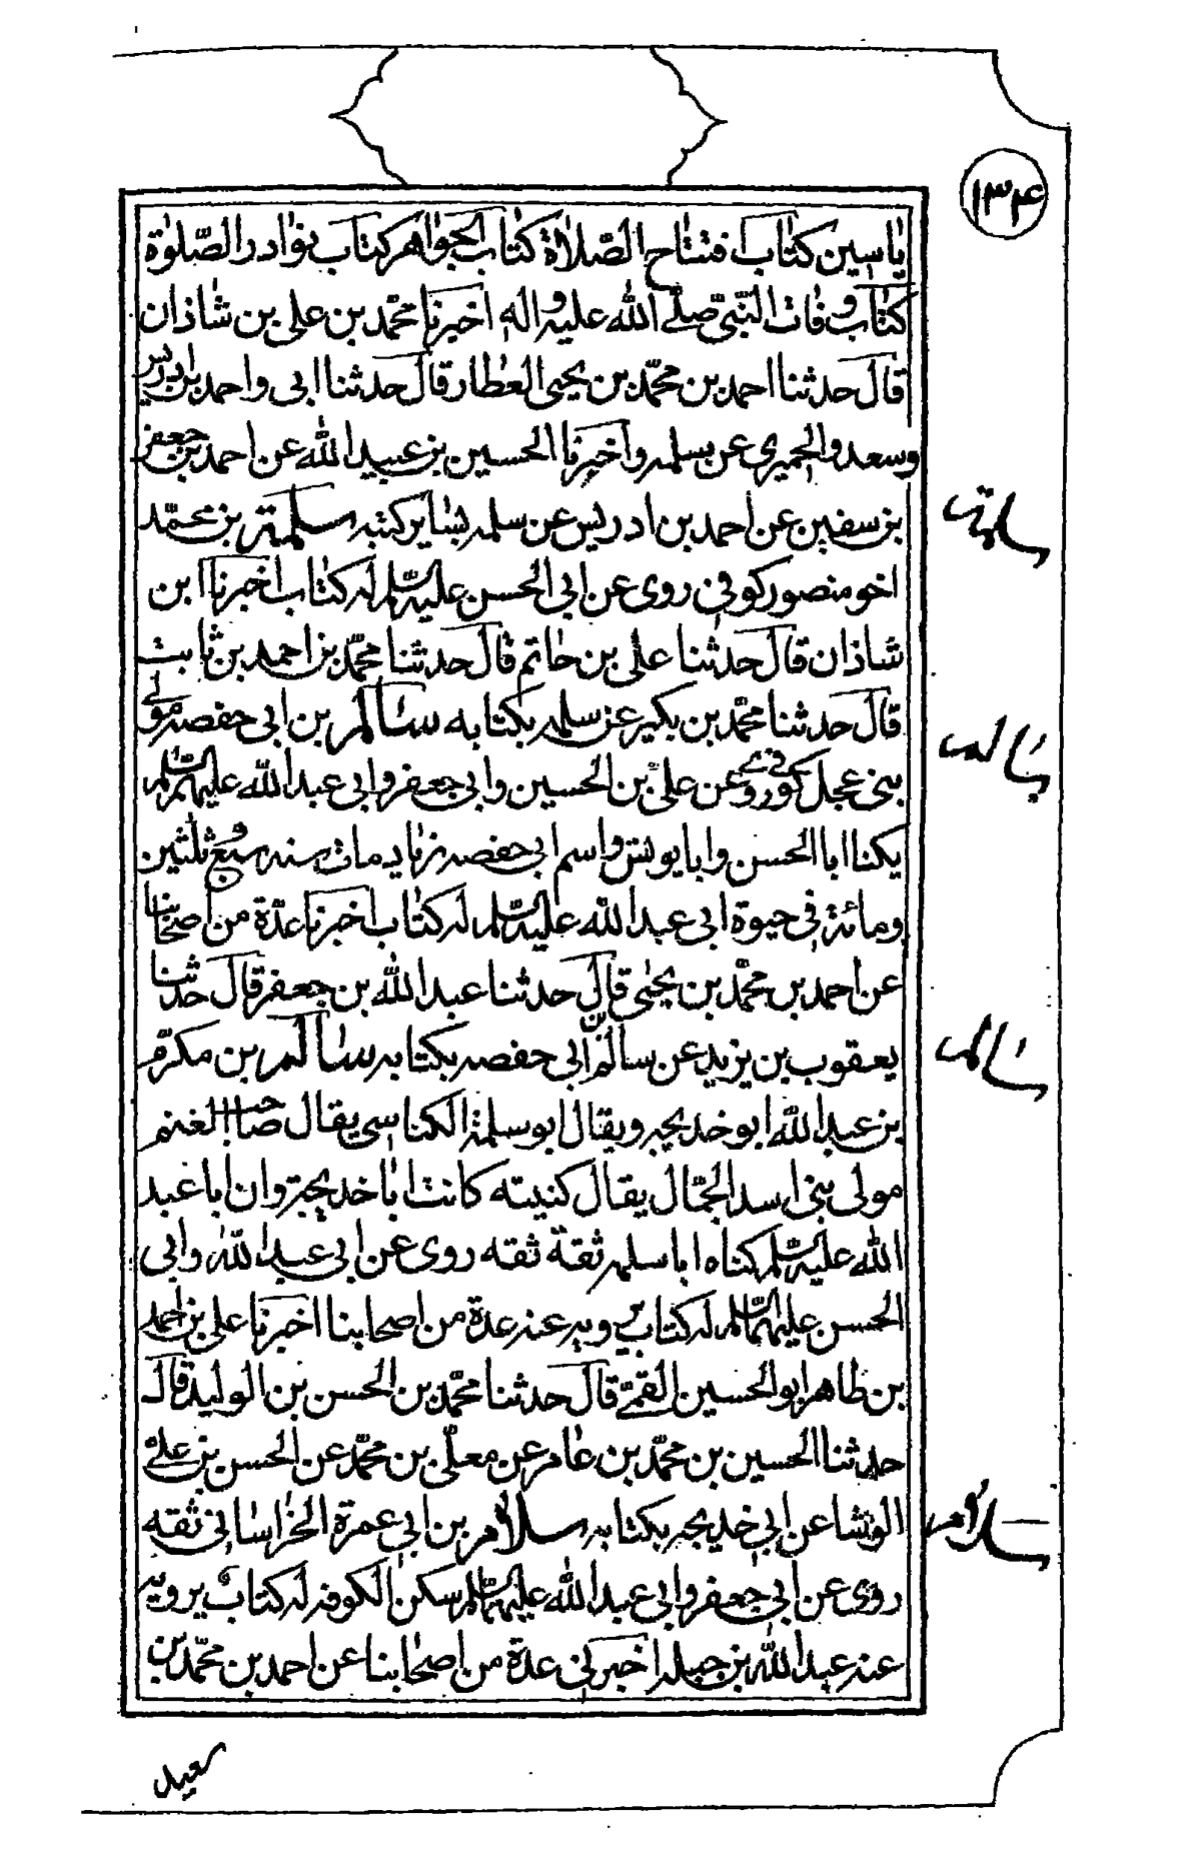 ۱۳۴
ياسين كتاب افتتاح الصّلاة كتاب الجواهر كتاب نوادر الصّلوة
كتاب وفات النّبىّ صلّى الله عليه واله اخبرنا محمّد بن على بن شاذان
قال حدثنا احمد بن محمّد بن يحيى العطار قال حدثنا ابى واحمد بن ادريس
وسعد والحميرى عن سلمه واخبرنا الحسين بن عبيد الله عن احمد بن جعفر
بن سفين عن احمد بن ادريس عن سلمه بساير كتبه سلمة بن محمّد
سلمة
اخو منصور كوفى روى عن ابى الحسن عليه السّلم له كتاب اخبرنا ابن
شاذان قال حدثنا على بن حاتم قال حدثنا محمّد بن احمد بن ثابت
قال حدثنا محمّد بن بكير عن سلمه بكتابه سالم بن ابى حفصه مولى
سالم
بنى عجل كوفى روى عن علىّ بن الحسين وابى جعفر وابى عبد الله عليهم السّلم
يكنا ابا الحسن وابا يونس واسم ابى حفصه زياد مات سنه سبع وثلثين
ومائة فى حيوة ابى عبد الله عليه السّلم له كتاب اخبرنا عدّة من اصحابنا
عن احمد بن محمّد بن يحيى قال حدثنا عبد الله بن جعفر قال حدثنا
يعقوب بن يزيد عن سالم بن ابى حفصه بكتابه سالم بن مكرّم
سالم
بن عبد الله ابو خديجه ويقال ابو سلمة الكناسى يقال صاحب الغنم
مولى بنى اسد الجمّال يقال كنيته كانت ابا خديجة وان ابا عبد
الله عليه السّلم كناه ابا سلمه ثقة ثقه روى عن ابى عبد الله وابى
الحسن عليهما السّلم له كتاب يرويه عنه عدة من اصحابنا اخبرنا على بن احمد
بن طاهر ابو الحسين القمىّ قال حدثنا محمّد بن الحسن بن الوليد قال
حدثنا الحسين بن محمّد بن عامر عن معلّى بن محمّد عن الحسن بن على
الوشا عن ابى خديجه بكتابه سلام بن ابى عمرة الخراسانى ثقه
سلام
روى عن ابى جعفر وابى عبد الله عليهما السّلم سكن الكوفه له كتاب يرويه
عنه عبد الله بن جبله اخبرنى عدة من اصحابنا عن احمد بن محمّد بن
سعيد